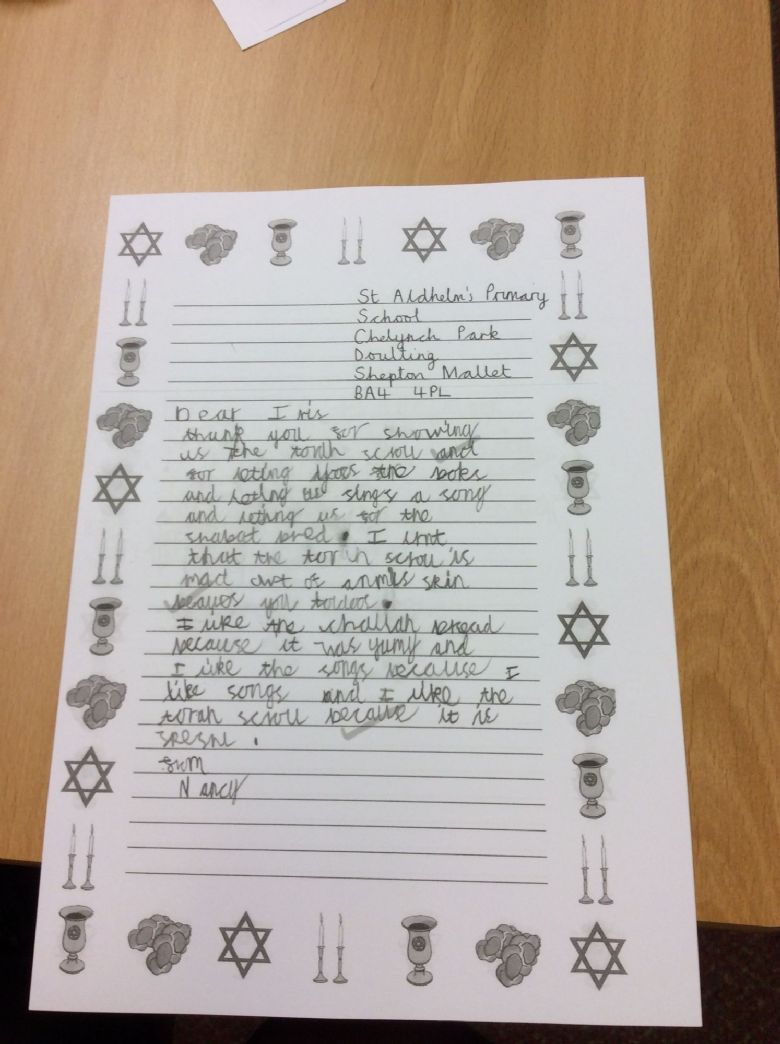 St Aldhelm's Primary
School
Chelynch Park
Doulting
Shepton Mallet
BA4 4PL
Dear Iris
thank you for showing
us the torah scroll and
for leting the boks
and leting us sings a song
and lething us for the
shabat bred. I lrnt
that the torah scroll is
mad owt of anmls skin
you
I like the challah bread
because it was yumy and
I like the songs because I
like songs and I like the
torah scroll because it is
speshl.
frum
Nancy